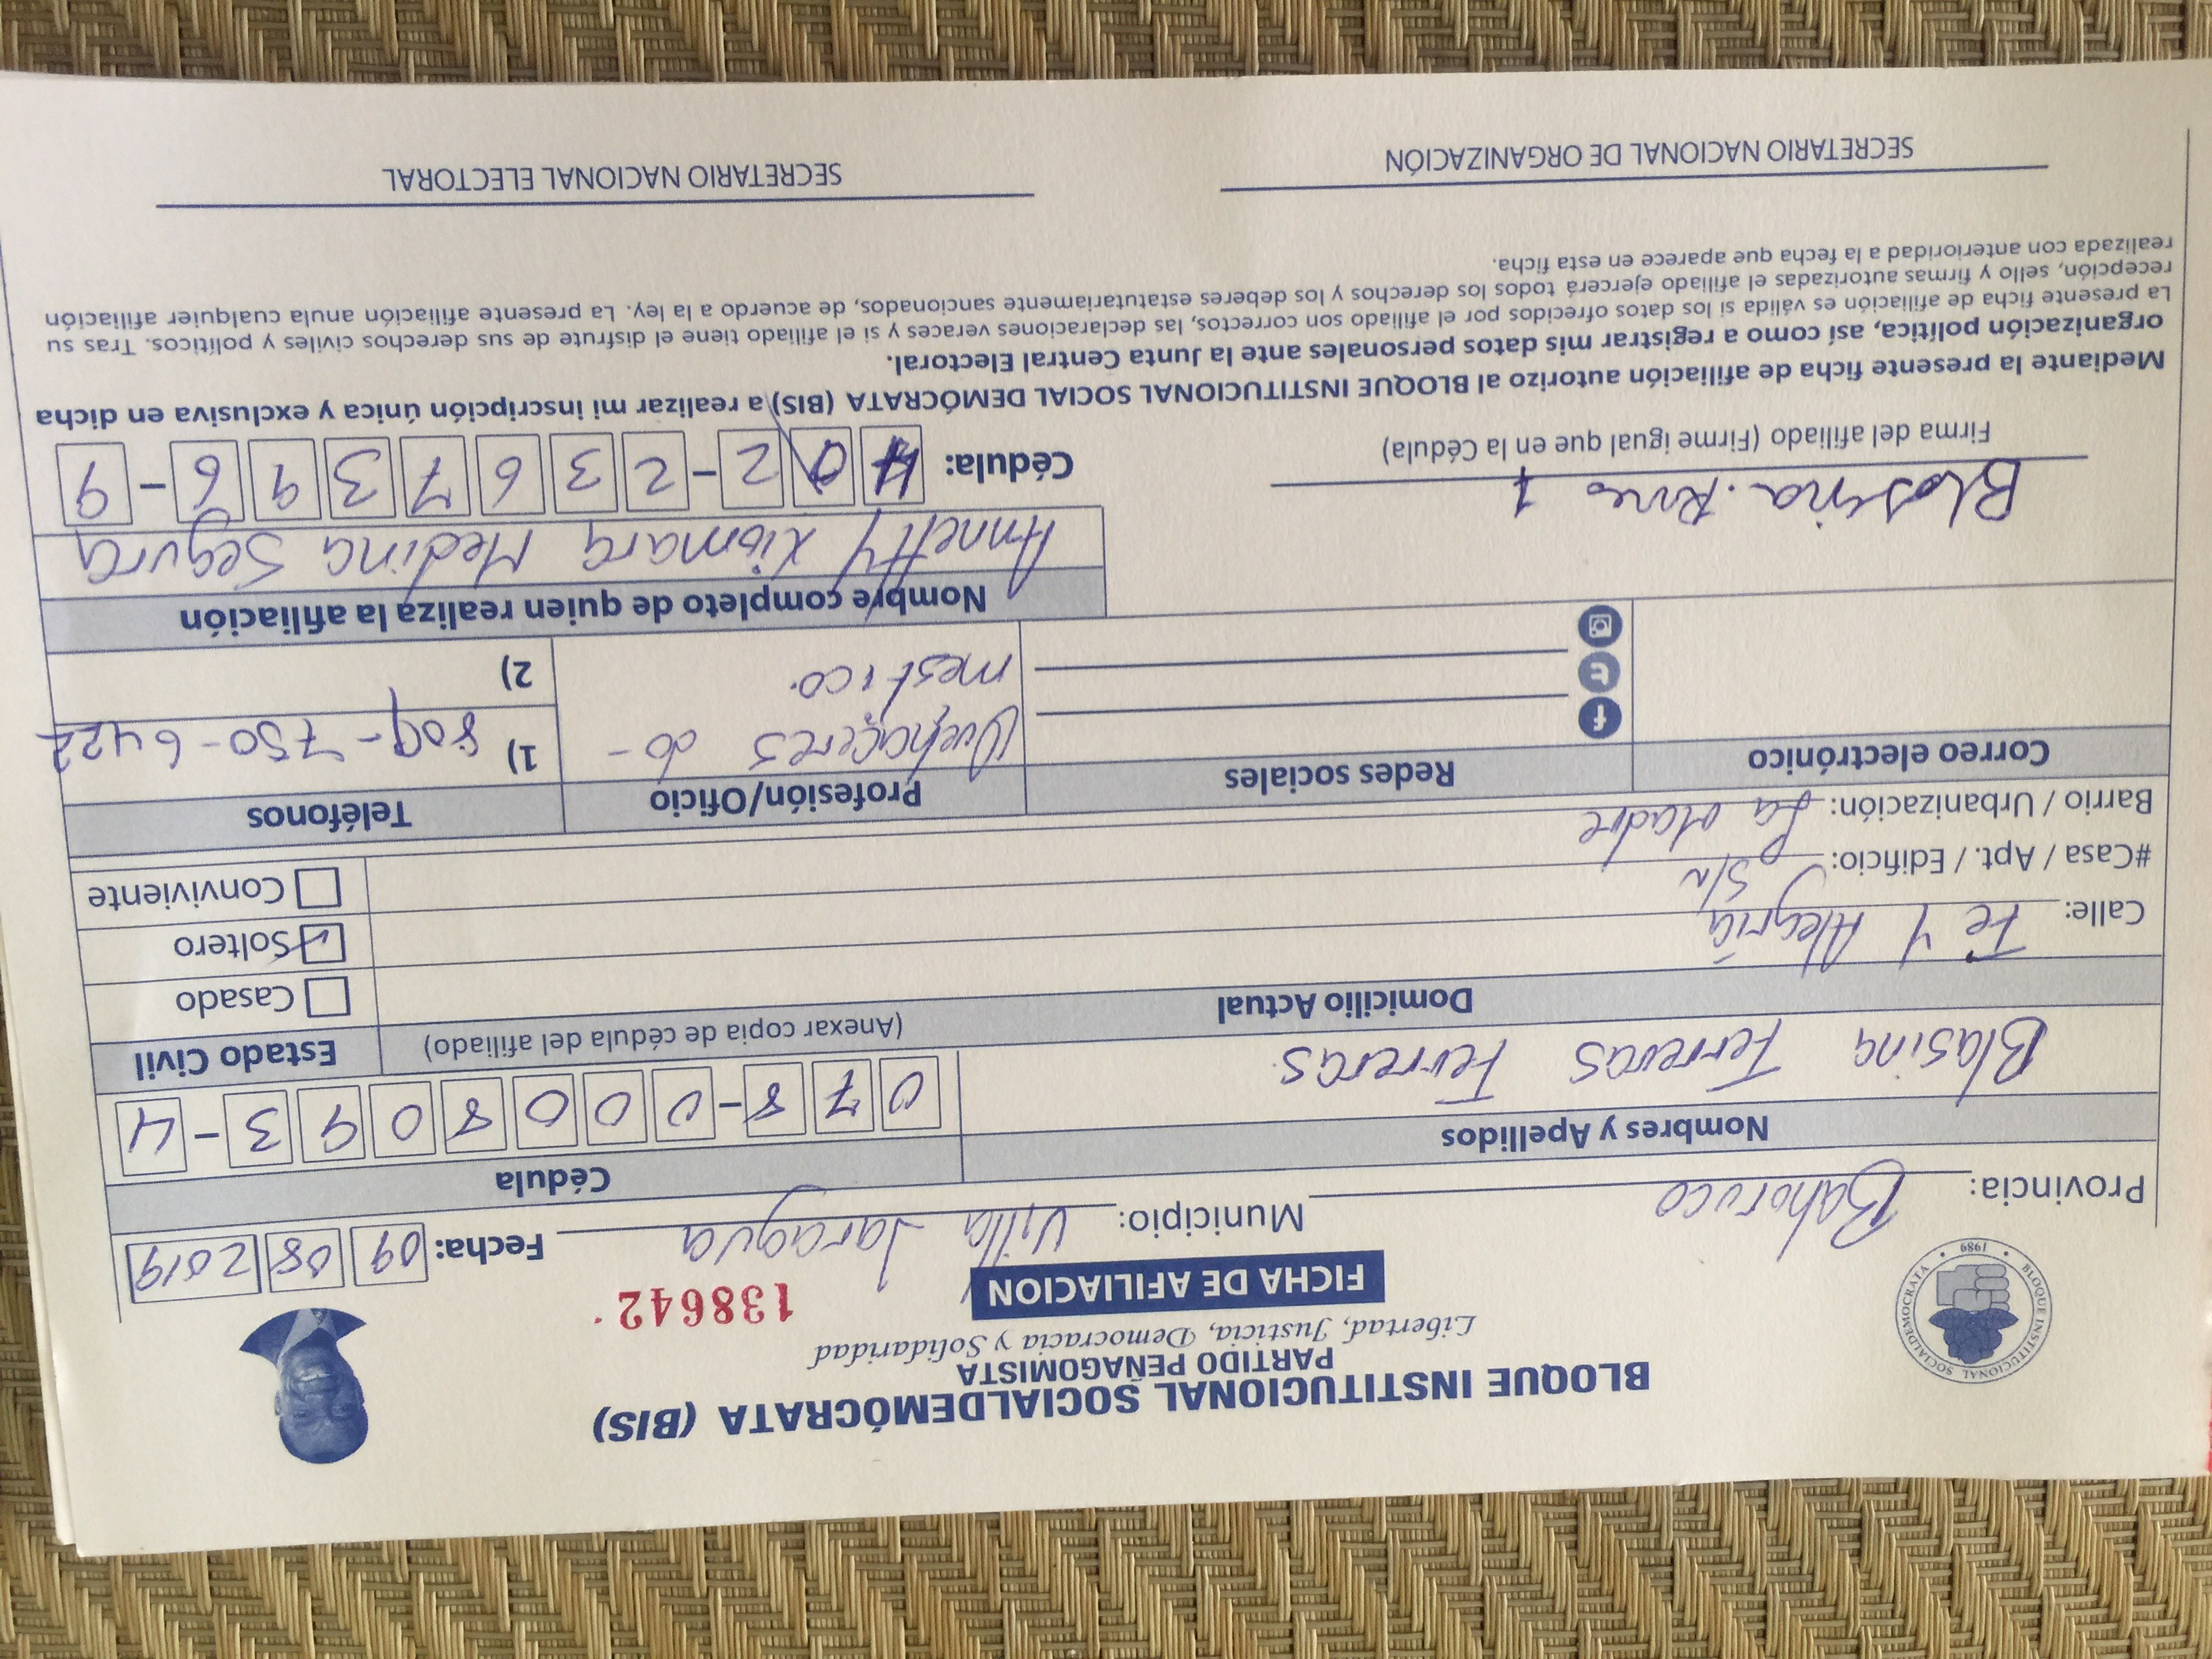 BLOQUE INSTITUCIONAL SOCIALDEMÓCRATA (BIS)
PARTIDO PEÑAGOMISTA
Libertad, Justicia, Democracia y Solidaridad
FICHA DE AFILIACION
138642
BLOQUE INSTITUCIONAL SOCIALDEMOCRATA
1989
Provincia: Bahoruco Municipio: Villa Jaragua Fecha: 09 08 2019
Nombres y Apellidos Cédula
Blasina Ferreras Ferreras 078-0008093-4
Domicilio Actual (Anexar copia de cédula del afiliado) Estado Civil
Calle: Fe Y Alegría
#Casa / Apt. / Edificio: S/n
Barrio / Urbanización: La Madre
Casado
Soltero
Conviviente
Correo electrónico Redes sociales Profesión/Oficio Teléfonos
Quehaceres do-
mestico.
1) 809-750-6422
2)
Nombre completo de quien realiza la afiliación
Annetty Xiomara Medina Segura
Firma del afiliado (Firme igual que en la Cédula)
Cédula: 402-2367396-9
Mediante la presente ficha de afiliación autorizo al BLOQUE INSTITUCIONAL SOCIAL DEMÓCRATA (BIS) a realizar mi inscripción única y exclusiva en dicha
organización política, así como a registrar mis datos personales ante la Junta Central Electoral.
La presente ficha de afiliación es válida si los datos ofrecidos por el afiliado son correctos, las declaraciones veraces y si el afiliado tiene el disfrute de sus derechos civiles y políticos. Tras su
recepción, sello y firmas autorizadas el afiliado ejercerá todos los derechos y los deberes estatutariamente sancionados, de acuerdo a la ley. La presente afiliación anula cualquier afiliación
realizada con anterioridad a la fecha que aparece en esta ficha.
SECRETARIO NACIONAL DE ORGANIZACIÓN SECRETARIO NACIONAL ELECTORAL